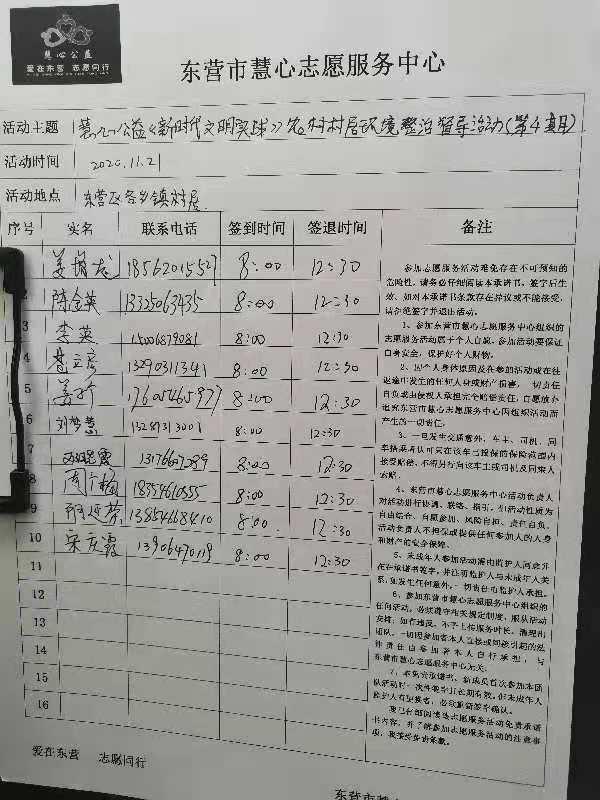 慧心公益
爱在东营 志愿同行
东营市慧心志愿服务中心
活动主题 慧心公益《新时代文明实践》农村村居环境整治督导活动(第4期)
活动时间 2020.11.21
活动地点 东营区各乡镇村居
序号 实名 联系电话 签到时间 签退时间 备注
18562015527 8:00 12:30
2 陈金英 13325063435 8:00 12:30
3 李英 15006879081 8:00 12:30
4 13290311341 8:00 12:30
5 17605465977 8:00 12:30
6 刘梦慧 13287313001 8:00 12:30
7 13176607289 8:00 12:30
8 18354610555 8:00 12:30
9 13854668410 8:00 12:30
10 宋庆霞 13906470119 8:00 12:30
11
12
13
14
15
16
参加志愿服务活动难免存在不可预知的
危险性，请务必仔细阅读本承诺书，签字后生
效，如对本承诺书条款存在异议或不能接受，
请拒绝签字并退出活动。
1、参加东营市慧心志愿服务中心组织的
志愿服务活动属于个人自愿。参加活动要保证
自身安全，保护好个人财物。
2、因个人身体原因及在参加活动或在往
返途中发生的任何人身或财产损害，一切责任
自负或由侵权人承担完全赔偿责任，自愿放弃
追究东营市慧心志愿服务中心因组织活动而
产生的一切责任。
3、一旦发生交通意外，车主、司机、同
车搭乘者认可只在该车已投保的保险范围内
接受赔偿，不得另行向该车主或司机及同乘人
索赔。
4、东营市慧心志愿服务中心活动负责人
对活动进行协调、联络、指引，但活动性质为
自由结合、自愿参加、风险自担、责任自负。
活动负责人不担保或提供任何参加人的人身
和财产的安全保障。
5、未成年人参加活动需由监护人同意并
在承诺书签字，并注明监护人与未成年人关
系，如发生任何意外，一切责任由监护人承担。
6、参加东营市慧心志愿服务中心组织的
任何活动，必须遵守相关规定制度，服从活动
安排，如有违反，不予上传服务时长，清理出
团队。一切因参加者本人直接或间接引起的法
律责任由参加者本人自行承担，与
东营市慧心志愿服务中心无关。
爱在东营 志愿同行